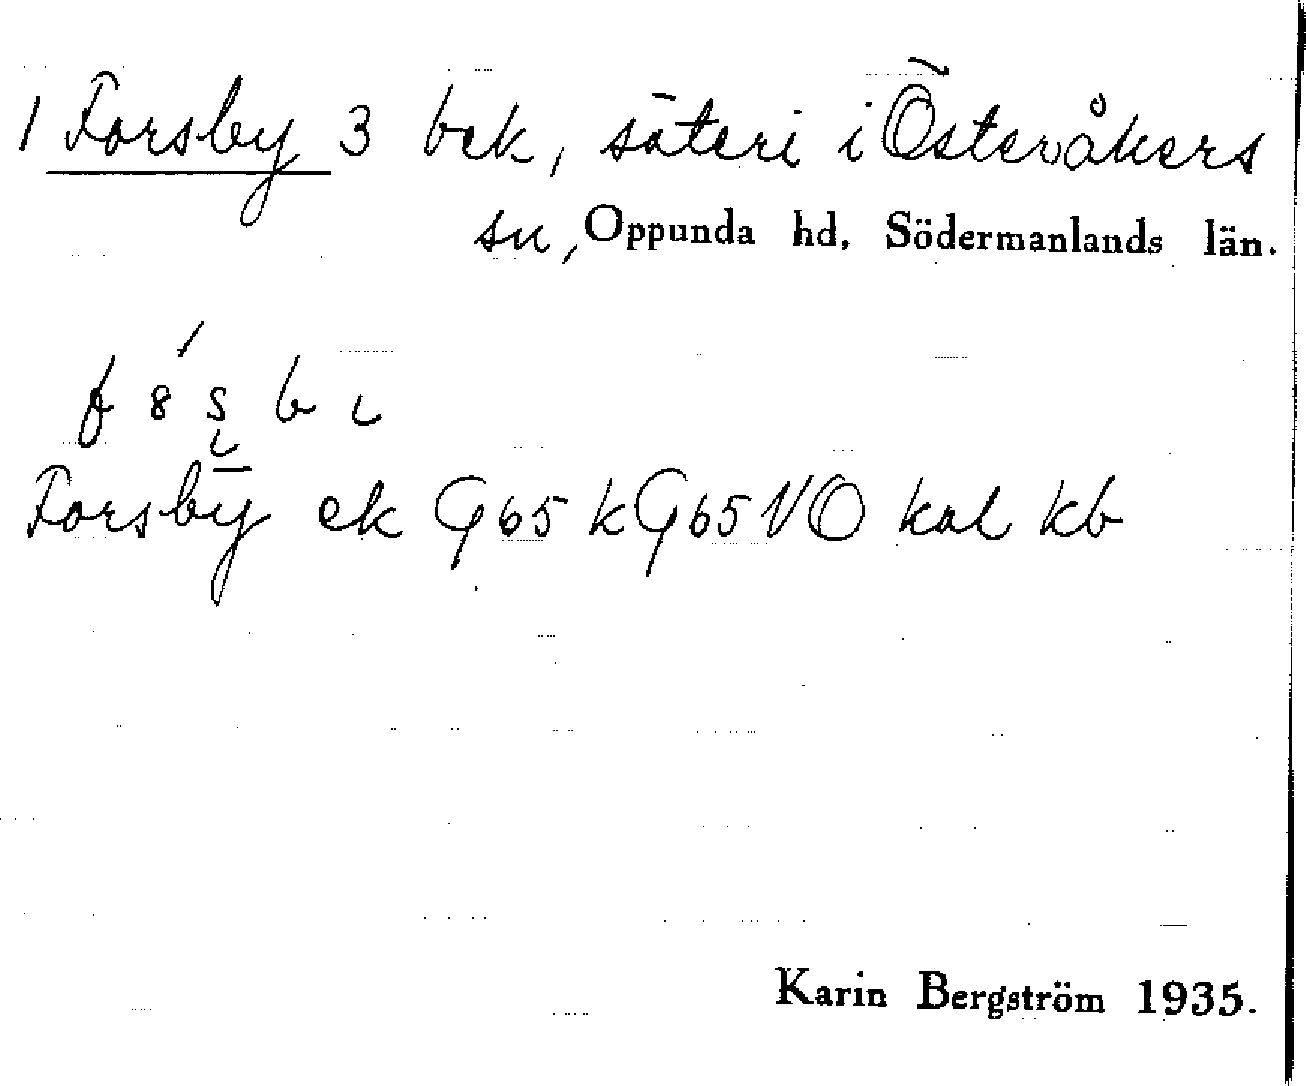 1 Forsby 3 bek, säteri i Österåkers
sn, Oppunda hd, Södermanlands län.
Forsby ek G65 kG65NO kal kb
Karin Bergström 1935.